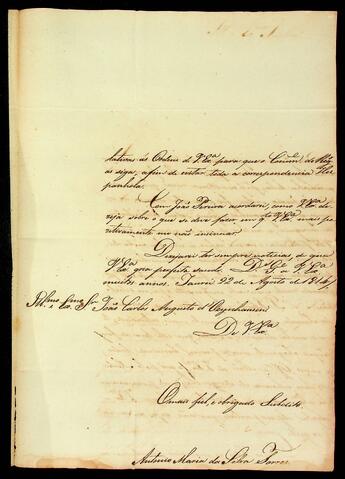 lativas ás Ordens de V.Exa. para que o Comum. de Miz
as siga, afim de evitar toda a correspondencia Hes
panhola.
Com João Pereira acordarei, como V.Exa. de
zeja sobre o que se deve fazer em qto. V.Exa. mais po
zitivamente me não insinuar.
Dezejarei ter sempre noticias, de que a
V.Exa. goza perfeita saude. Ds. Ge. a V.Exa.
muitos annos. Jaurú 22 de Agosto de 1814
Illmo. e Exmo. Snr. João Carlos Augusto d'Oeynhausen
De V.Exa.
O mais fiel, e obrigado Subdito
Antonio Maria da Silva Torres